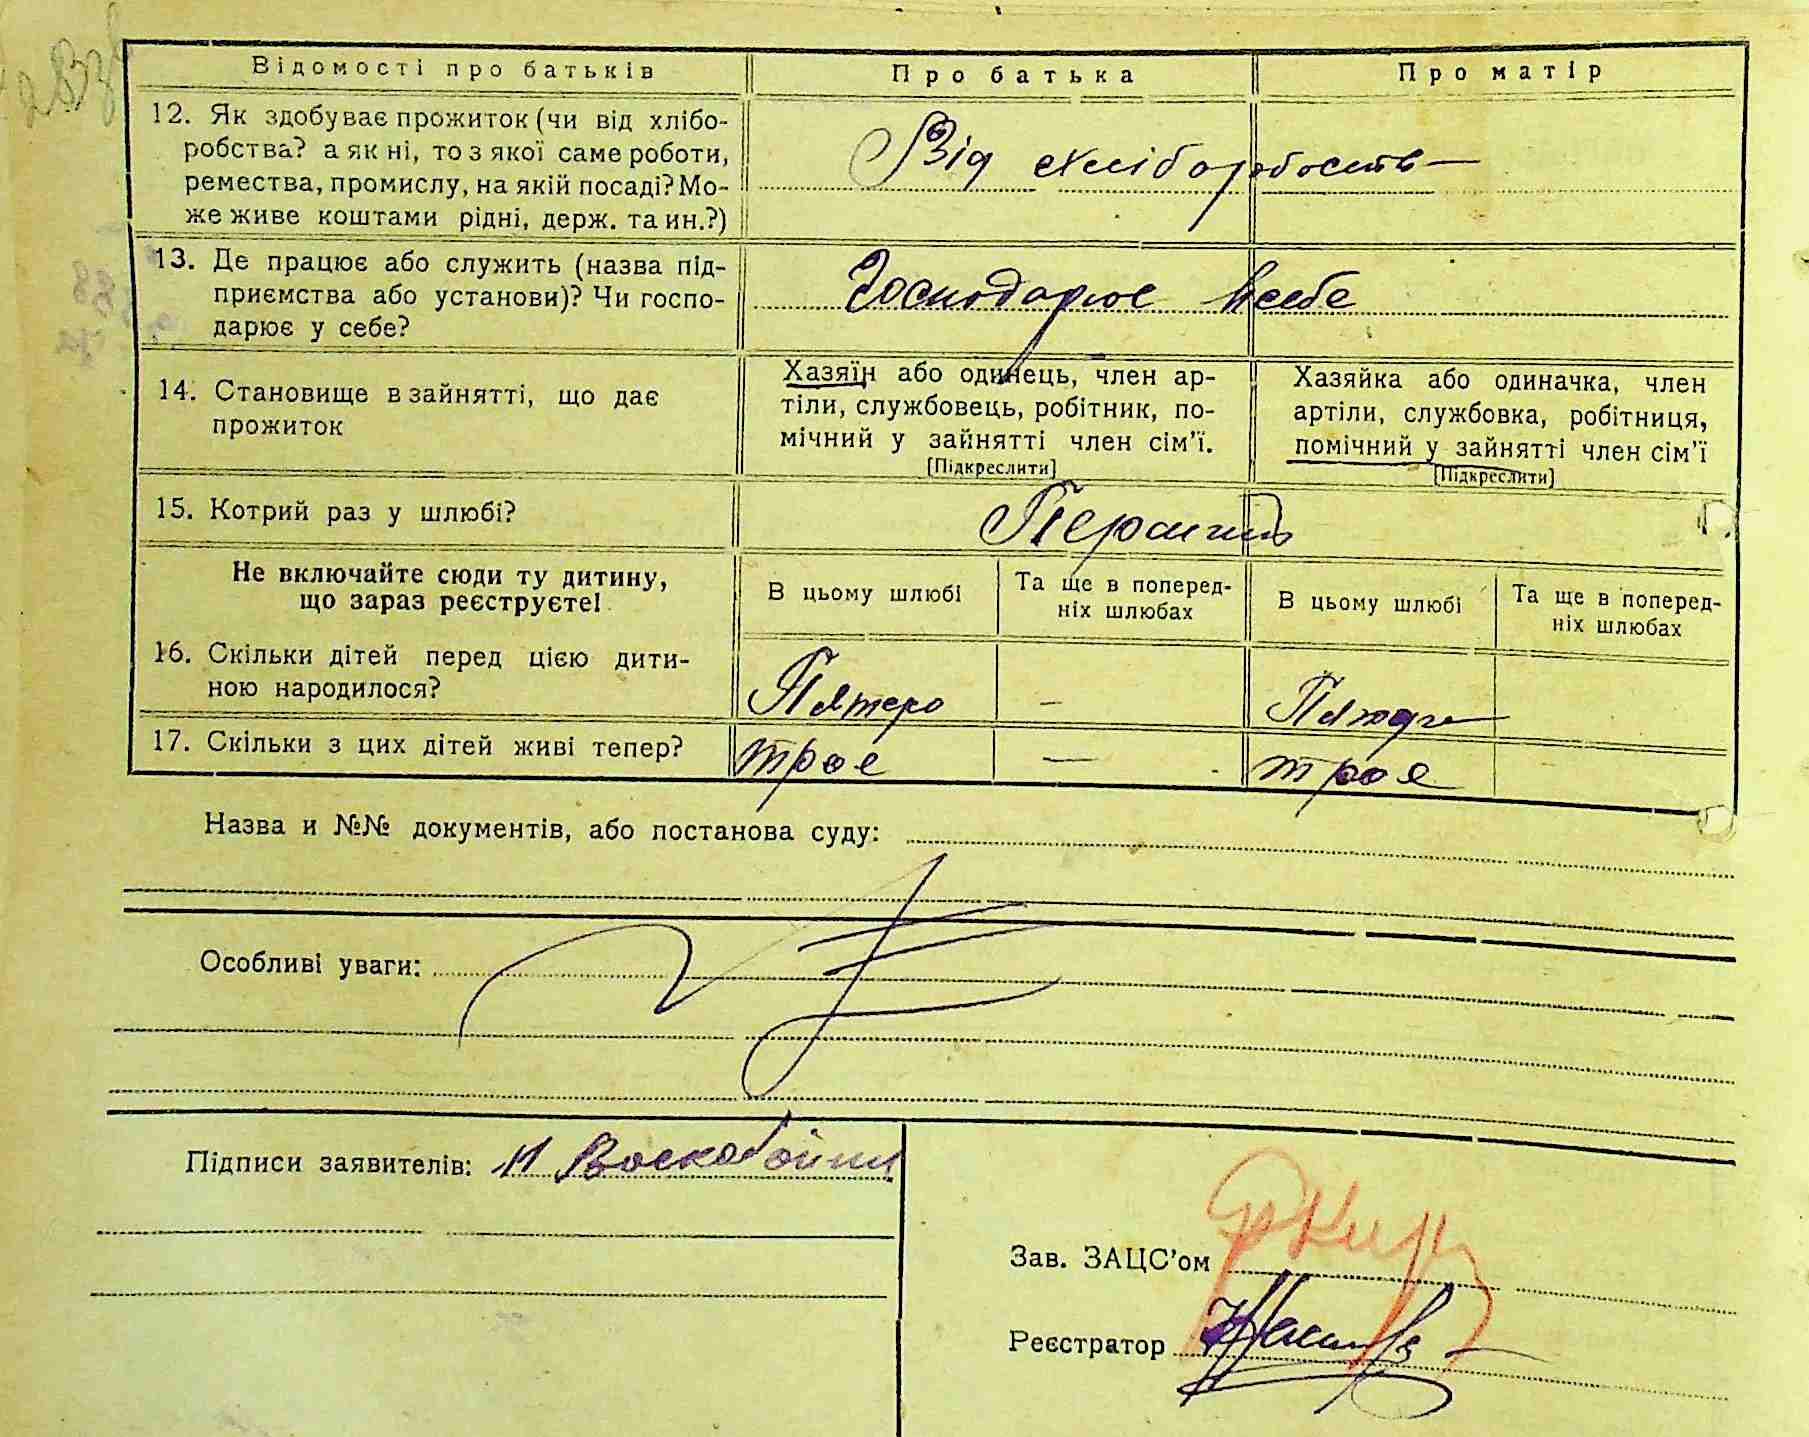 Відомості про батьків Про батька Про матір
12. Як здобуває прожиток (чи від хлібо-
робства? а як ні, то з якої саме роботи,
ремества, промислу, на якій посаді? Мо-
же живе коштами рідні, держ. та ин.?)
Від хліборобств
13. Де працює або служить (назва під-
приємства або установи)? Чи госпо-
дарює у себе?
Господарює в себе
14. Становище в зайнятті, що дає
прожиток
Хазяїн або одинець, член ар-
тіли, службовець, робітник, по-
мічний у зайнятті член сім'ї.
[Підкреслити]
Хазяйка або одиначка, член
артіли, службовка, робітниця,
помічний у зайнятті член сім'ї
[Підкреслити]
15. Котрий раз у шлюбі?
Не включайте сюди ту дитину,
що зараз реєструєте!
В цьому шлюбі
Та ще в поперед-
ніх шлюбах
В цьому шлюбі
Та ще в поперед-
ніх шлюбах
16. Скільки дітей перед цією дити-
ною народилося?
Пятеро —
17. Скільки з цих дітей живі тепер?
троє — троя
Назва и №№ документів, або постанова суду:
Особливі уваги:
Підписи заявителів:
Зав. ЗАЦС'ом
Реєстратор